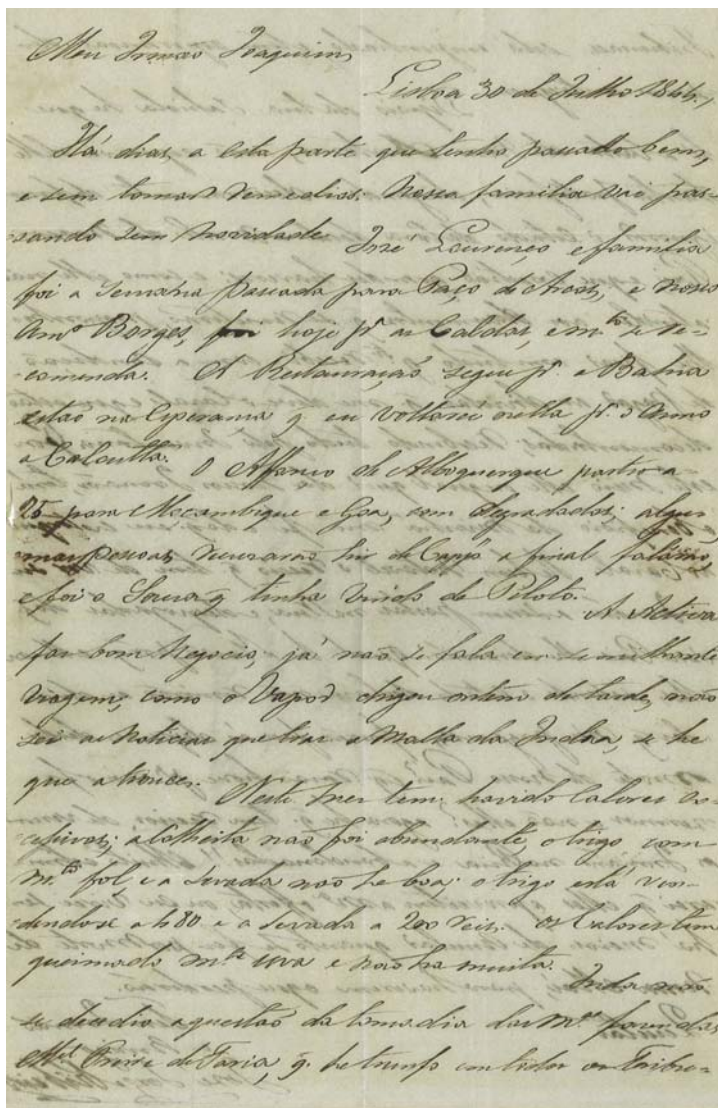 Meu Irmao Joaquim
Lisboa 30 de Julho 1844,
Há dias, a esta parte que tenho passado bem,
e sem tomar remedios. Nossa familia vai pas-
sando sem novidade José Lourenço e familia
foi a semana passada para Paço de Arcos, e nosso
Amº Borges, foi hoje pª as Caldas, e mtº se re-
comenda. A Restauração segue pª a Bahia
estão na Esperança q eu voltarei nella pª o Anno
a Calcutta. O Affonso de Alboquerque partio a
25 para Moçambique e Goa, com degradados; algu-
mas pessoas recusarão hir de Capº a final
e foi o Sousa q tinha vindo de Piloto. A Activa
faz bom Negocio, já não se fala em semilhante
viagem, como o Vapor chegou ontem de tarde, não
sei as Noticias que traz a Malla da India, se he
que a trouce. Neste mez tem havido Calores ex-
cessivos; a Colheita não foi abundante, o trigo com
mtº e a sevada não he boa; o trigo está ven-
dendose a 480 e a sevada a 200 reis. os Calores tem
queimado mtª uva e não ha muita. Inda não
se decedio a questão da tomadia das fazendas
Mel Freire de Faria, q he trunfo em todos os Tribu-